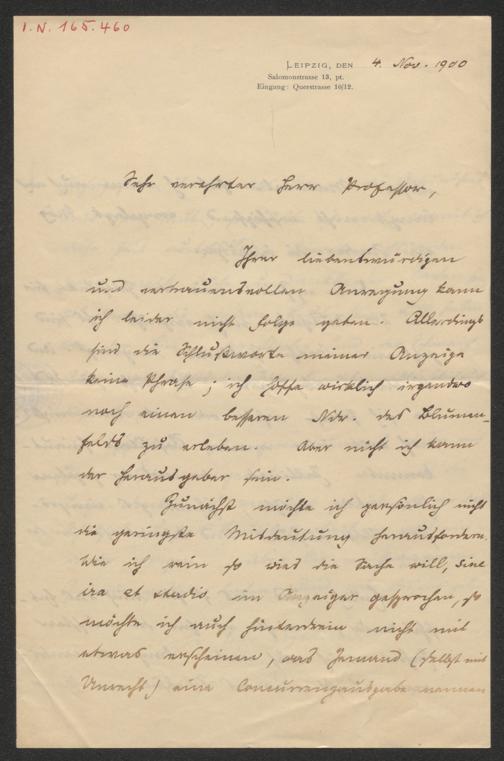 I.N. 165.460
LEIPZIG, DEN 4. Nov. 1900
Salomonstrasse 13, pt.
Eingang: Querstrasse 10/12.
Sehr verehrter Herr Professor,
Ihrer liebenswürdigen
und vertrauensvollen Anregung kann
ich leider nicht Folge geben. Allerdings
sind die Schlußworte meiner Anzeige
keine Phrase; ich hoffe wirklich irgendwo
noch einen besseren Ndr. des Blumen-
felds zu erleben. Aber nicht ich kann
der Herausgeber sein.
Zunächst möchte ich persönlich nicht
die geringste Misdeutung herausfordern.
Wie ich rein so wies die Sache will, sine
ira et studio im Anzeiger gesprochen, so
möchte ich auch hinterdrein nicht mit
etwas erscheinen, was Jemand (selbst mit
Unrecht) eine Concurrenzausgabe nennen